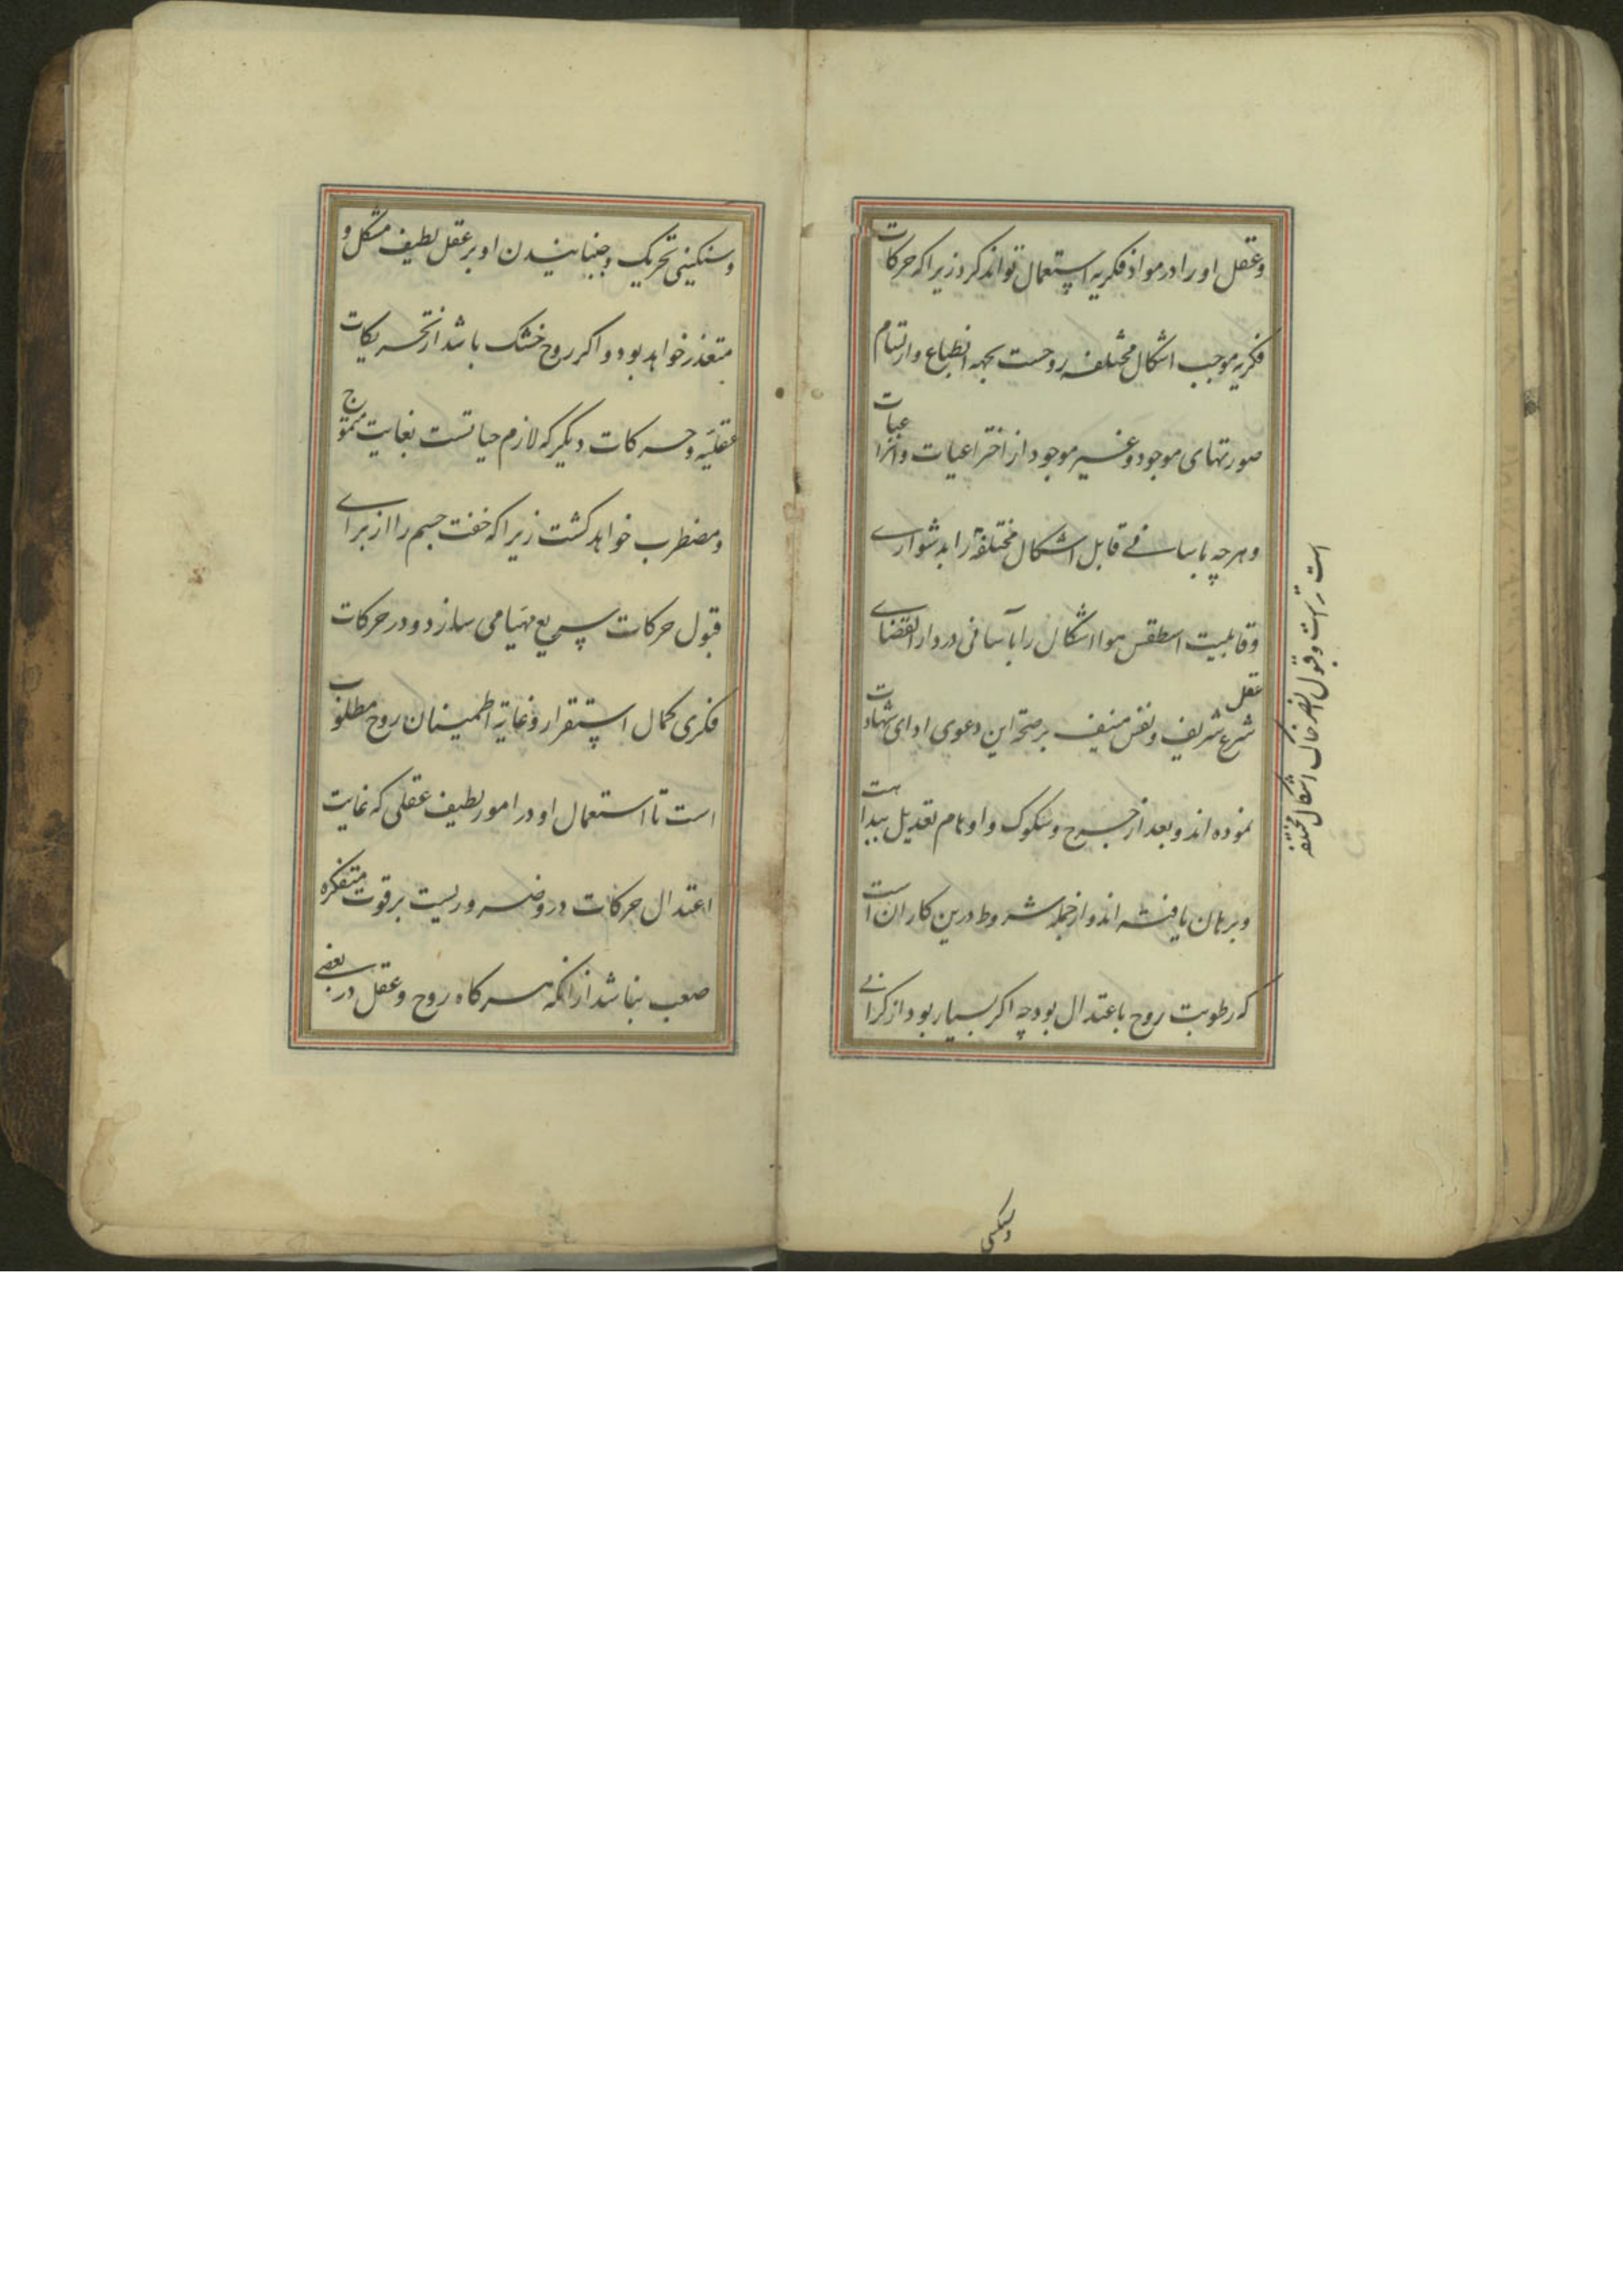 وعقل او را در مواد فکریه استعمال تواند کرد زیرا که حرکات
فکریه موجب اشکال مختلفه روحست بجهه انطباع و ارتسام
صورتهای موجود و غیر موجود از اختراعیات و انتزاعیات
و هرچه باسانی قابل اشکال مختلفه را بدشواری
وقابلیت اسطقس هوا اشکال را بآسانی در دار القضای
عقل
شرع شریف ونفس منیف برصحة این دعوی ادای شهادت
نموده اند و بعد از جرح وشکوک و اوهام تعدیل بیداهت
وبرهان یافته اند و از جمله شروط درین کار ان است
که رطوبت روح باعتدال بود چه اکر بسیار بود از کرانی
است تر است وقبول عنصر خاک اشکال مختلفه
وسنکینی
وسنکینی تحریک وجنبانیدن او بر عقل لطیف مشکل و
متعذر خواهد بود و اکر روح خشک باشد از تحریکات
عقلیه وحرکات دیکر که لازم حیاتست بغایت متموج
ومضطرب خواهد کشت زیرا که خفت جسم را از برای
قبول حرکات سریع مهیا می سازد و در حرکات
فکری کمال استقرار وغایة اطمینان روح مطلوب
است تا استعمال او در امور لطیف عقلی که غایت
اعتدال حرکات درو ضروریست بر قوت متفکره
صعب نباشد از انکه هرکاه روح وعقل در بعضی